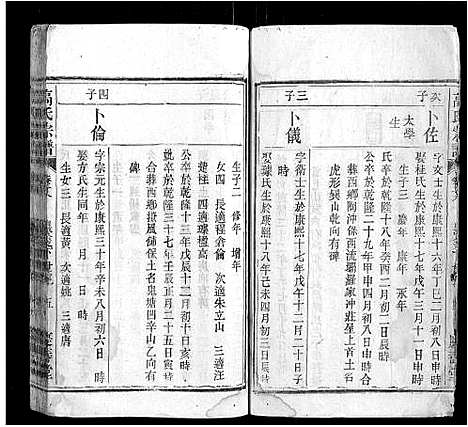 次子
卜佐
太學
生
字文士生於康熙十六年丁巳二月初八日申時
娶桂氏生於康熙十七年戊午三月十一日申時
生子三 歲年 康年 永年
公卒於乾隆十八年癸酉二月初二日辰時
妣卒於乾隆二十九年甲申四月初八日申時合
葬西鄉河沖保西流壩羅家沖莊星上首寅
虎形艮山乾向有碑
三子
卜儀
字衛士生於康熙十七年戊午十二月二十日子時
娶璩氏生於康熙十八年己未四月初三日子時
生子二 修年 增年
女四 長適程倉倫 次適朱立山 三適汪
楚桂 四適璩楹高
公卒於乾隆十三年戊辰十二月初十日亥時
妣卒於乾隆三十七年壬辰正月二十五日寅時
合葬西鄉掀風舖保土名鬼塘凹辛山乙向有
碑
四子
卜倫
字宗元生於康熙三十年辛未八月初六日 時
娶方氏生於同年 月 日 時
生女三 長適黃 次適姚 三適唐
高氏宗譜